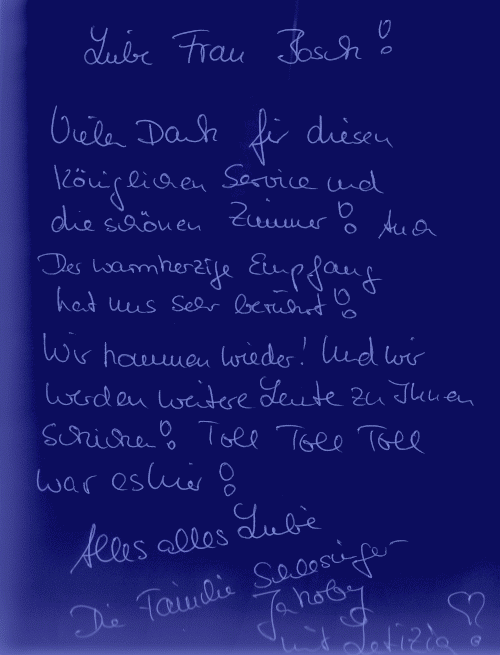 Liebe Frau Bosch!
Vielen Dank für diesen
königlichen Service und
die schönen Zimmer! Auch
Der warmherzige Empfang
hat uns sehr berührt!
Wir kommen wieder! Und wir
werden weitere Leute zu Ihnen
schicken! Toll Toll Toll
war es hier!
Alles alles Liebe
Die Familie Schlesinger-
Jakoby
mit Letizia!